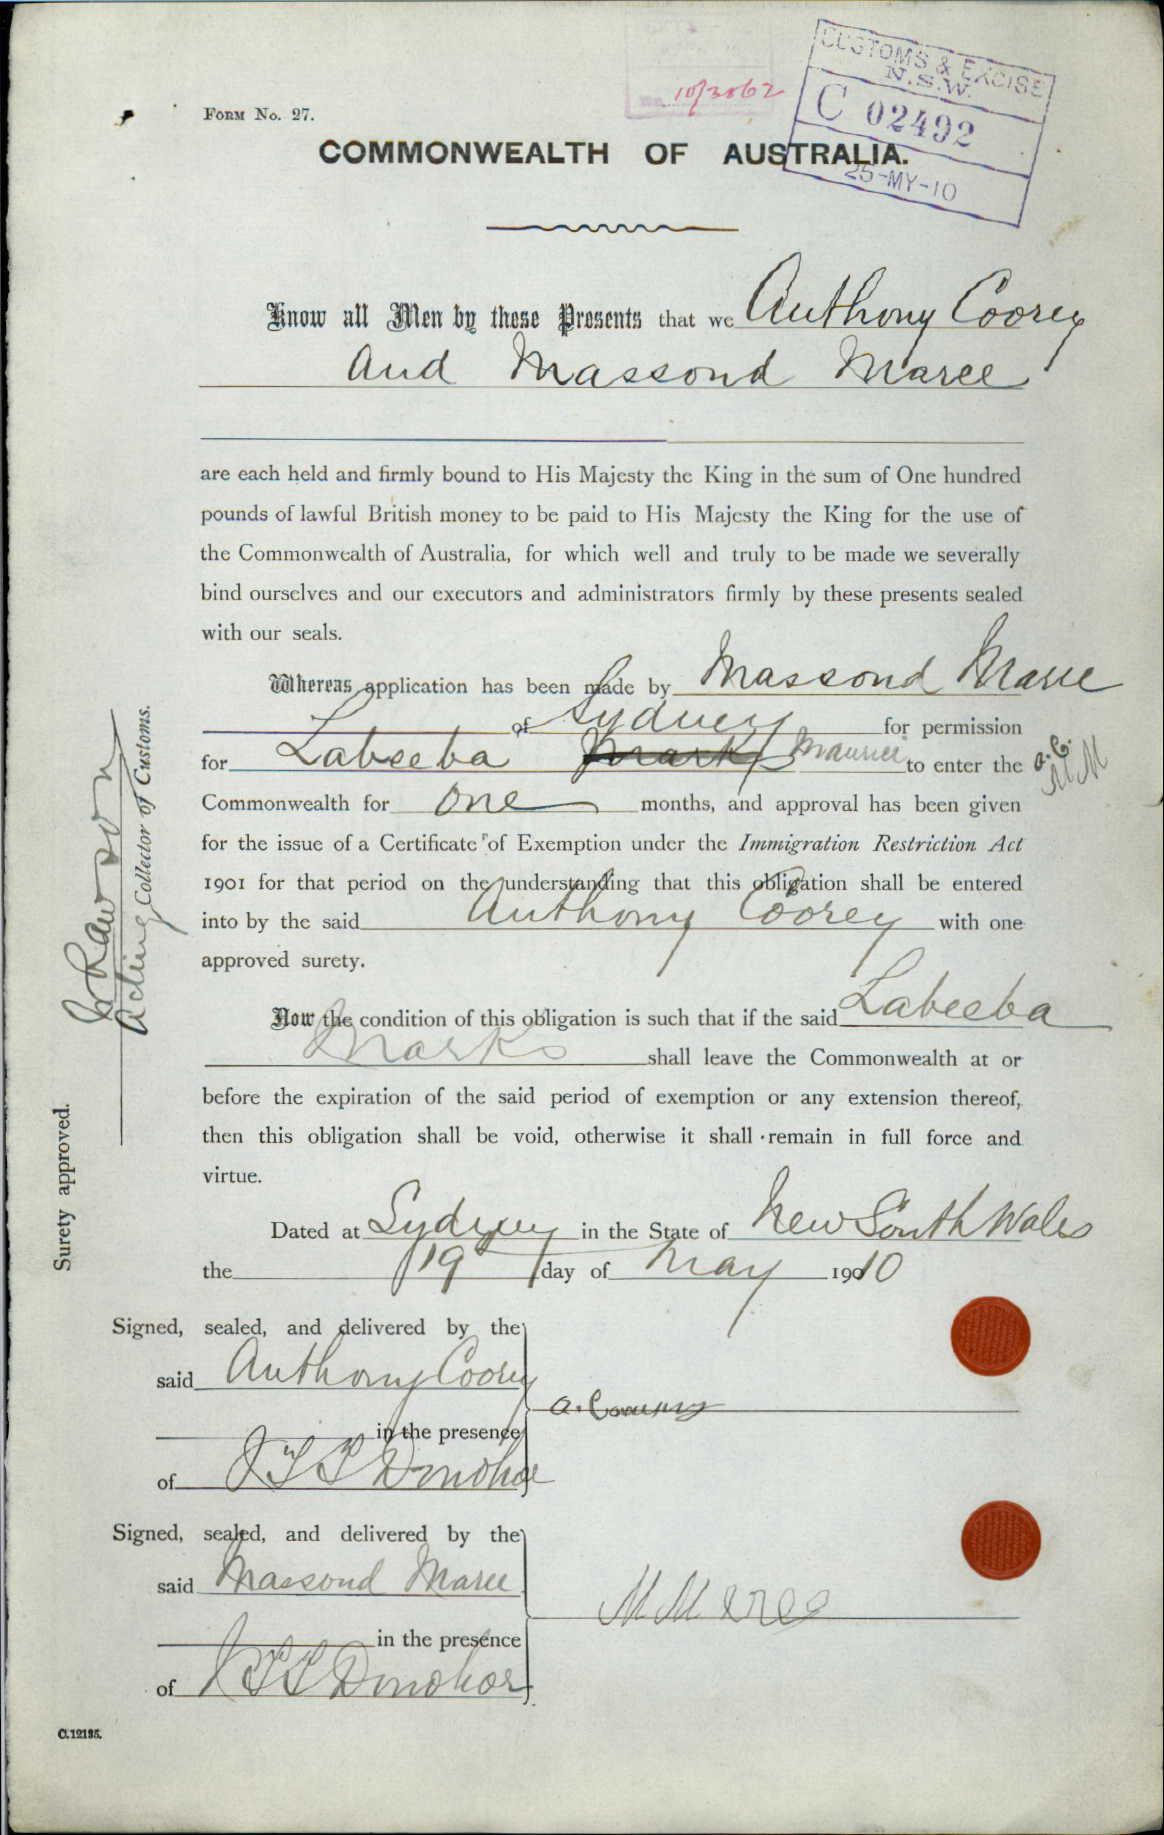 10/3862
CUSTOMS & EXCISE
N.S.W.
C 02492
25-MY-10
FORM No. 27.
COMMONWEALTH OF AUSTRALIA.
Know all Men by these Presents that we Anthony Coorey
and Massoud Maree
are each held and firmly bound to His Majesty the King in the sum of One hundred
pounds of lawful British money to be paid to His Majesty the King for the use of
the Commonwealth of Australia, for which well and truly to be made we severally
bind ourselves and our executors and administrators firmly by these presents sealed
with our seals.
Whereas application has been made by Massoud Maree
of Sydney for permission
for Labeeba Marks Maurice to enter the A.C.
MM
Commonwealth for one months, and approval has been given
for the issue of a Certificate of Exemption under the Immigration Restriction Act
1901 for that period on the understanding that this obligation shall be entered
into by the said Anthony Coorey with one
approved surety.
Now the condition of this obligation is such that if the said Labeeba
Marks shall leave the Commonwealth at or
before the expiration of the said period of exemption or any extension thereof,
then this obligation shall be void, otherwise it shall remain in full force and
virtue.
Dated at Sydney in the State of New South Wales
the 19 day of May 1910
Signed, sealed, and delivered by the
said Anthony Coorey
A. Coorey
in the presence
of J T T Donohoe
Signed, sealed, and delivered by the
said Massoud Maree
M Maree
in the presence
of J T T Donohoe
C.12135.
Surety approved.
Rawson
Acting Collector of Customs.